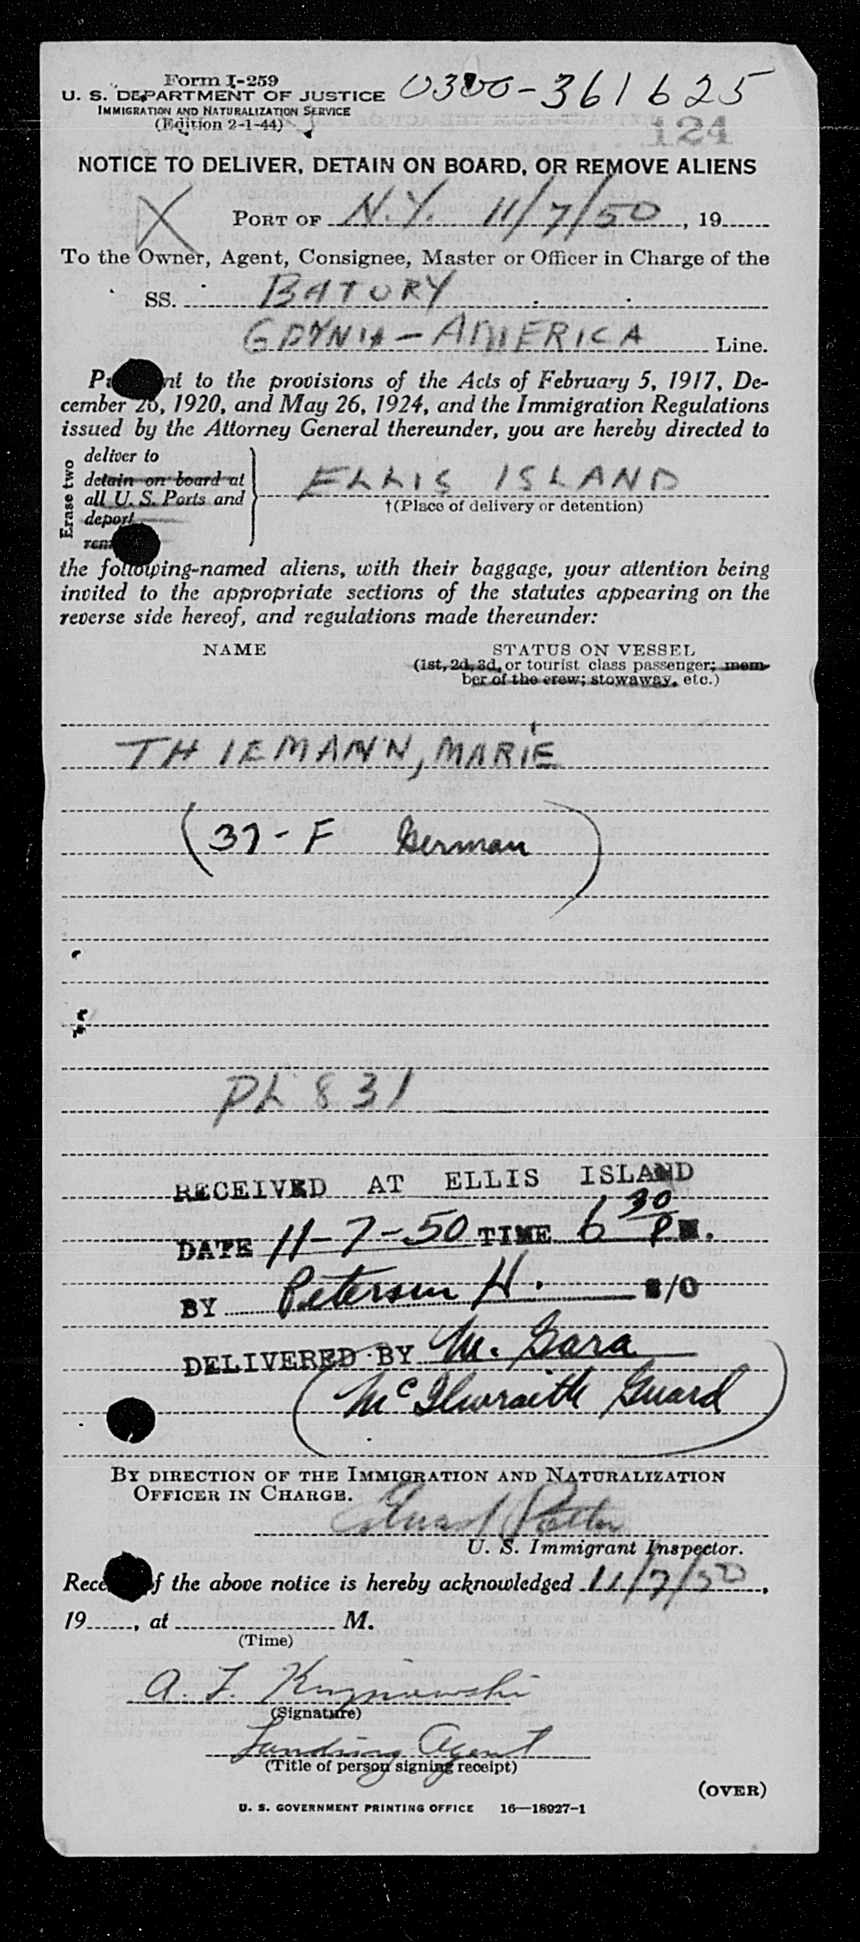 Form I-259
U. S. DEPARTMENT OF JUSTICE
IMMIGRATION AND NATURALIZATION SERVICE
(Edition 2-1-44)
0300-361625
124
NOTICE TO DELIVER, DETAIN ON BOARD, OR REMOVE ALIENS
X
PORT OF N.Y. 11/7/50, 19
To the Owner, Agent, Consignee, Master or Officer in Charge of the
SS. BATORY
GDYNIA-AMERICA Line.
to the provisions of the Acts of February 5, 1917, De-
cember 26, 1920, and May 26, 1924, and the Immigration Regulations
issued by the Attorney General thereunder, you are hereby directed to
Erase two
deliver to
detain on board at
all U. S. Ports and
deport
ELLIS ISLAND
†(Place of delivery or detention)
the following-named aliens, with their baggage, your attention being
invited to the appropriate sections of the statutes appearing on the
reverse side hereof, and regulations made thereunder:
NAME STATUS ON VESSEL
(1st, 2d, 3d, or tourist class passenger; mem-
ber of the crew; stowaway, etc.)
THIEMANN, MARIE
(37-F German)
PL 831
RECEIVED AT ELLIS ISLAND
DATE 11-7-50 TIME 6 30 PM.
BY Petersen H. S/O
DELIVERED BY M. Gara
(McIlwraith Guard)
BY DIRECTION OF THE IMMIGRATION AND NATURALIZATION
OFFICER IN CHARGE.
U. S. Immigrant Inspector.
of the above notice is hereby acknowledged 11/7/50,
19, at M.
(Time)
A. J.
(Signature)
Landing Agent
(Title of person signing receipt)
(OVER)
U. S. GOVERNMENT PRINTING OFFICE 16—18927-1